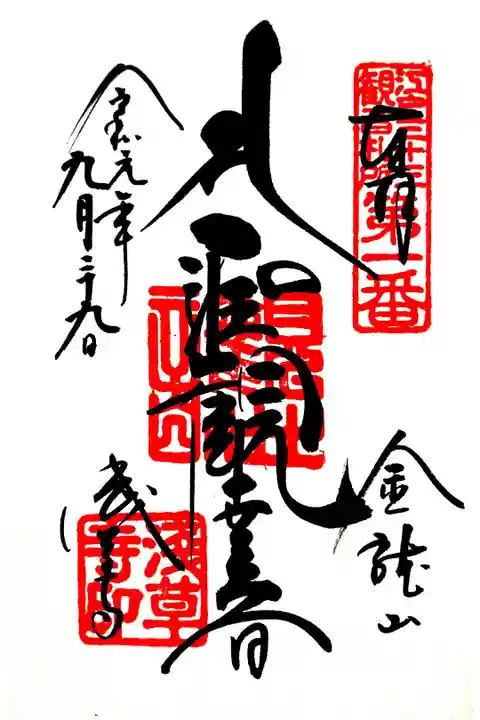 奉拝
江戸三十三
観音札所第一番
金龍山
聖観世音
浅草寺
浅草寺印
令和元年
九月二十九日